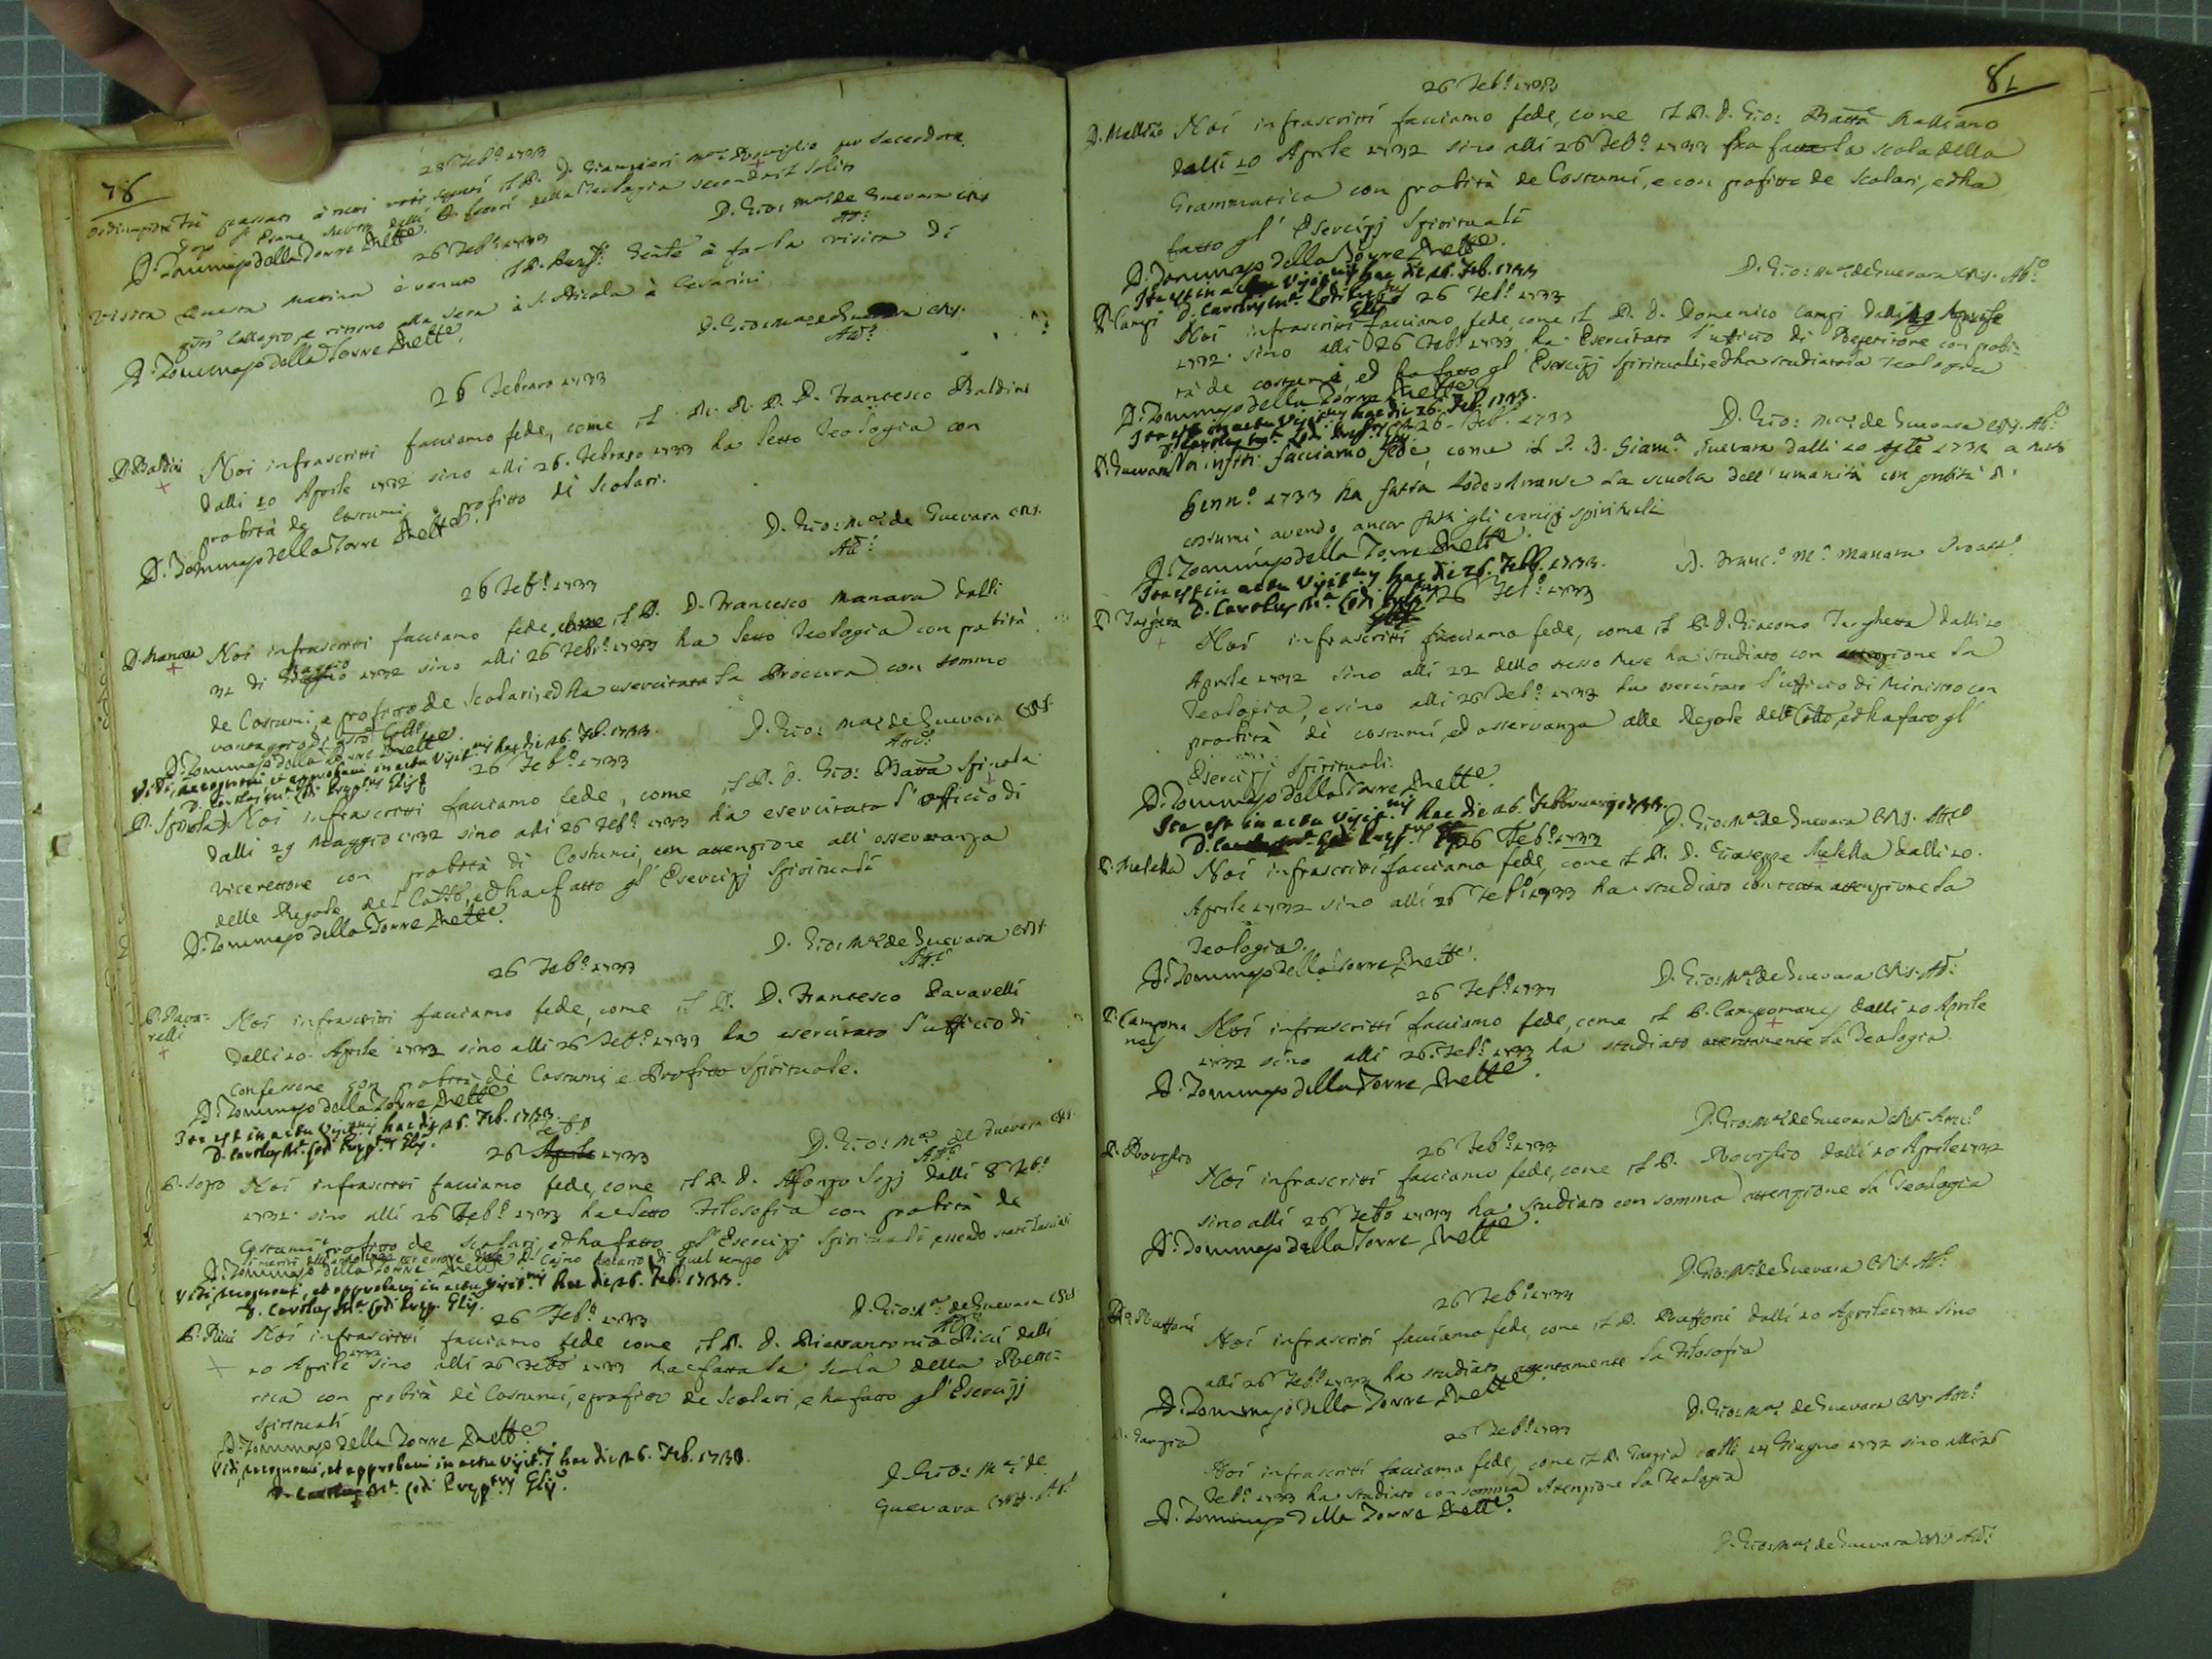 78
28 Feb.º 1733
passato à voti segreti il P. D. Giampieri M.ª Roviglio per Sacerdote
dopo l' Esame della Teologia secondo il solito
D. Tommaso della Torre Prett.e
D. Gio: M.ª de Guevara CRS
Att.º
26 Feb.º 1733
Visita Questa mattina è venuto il P. à far la visita di
Collegio, e ritornò alla sera à S. Nicola à Cesarini
D. Tommaso della Torre Prett.e
D. Gio: M.ª de Guevara CRS.
Att.º
26 Febraro 1733
P. Baldini Noi infrascritti facciamo fede, come il M. R. P. D. Francesco Baldini
dalli 20 Aprile 1732 sino alli 26. Febraro 1733 ha letto Teologia con
probità de Costumi, e profitto di Scolari.
D. Tommaso della Torre Prett.e
D. Gio: M.ª de Guevara CRS.
Att.º
26 Feb.º 1733
P. Manara Noi infrascritti facciamo fede, come il P. D. Francesco Manara dalli
31 di Maggio 1732 sino alli 26 Febr.º 1733 ha letto Teologia con probità
de Costumi, e profitto de Scolari, ed ha esercitata la Procura con sommo
vantaggio di q.sto Coll.o
D. Tommaso della Torre Prett.e
D. Gio: M.ª de Guevara CRS.
Att.º
Vidi, recognovi, et approbavi in actu Visit.nis hac die 26. Feb. 1733.
D. Carolus M.ª Lodi Prep.tus Gen.lis
26 Feb.º 1733
P. Spinola Noi infrascritti facciamo fede, come il P. D. Gio: Batta Spinola
dalli 29 Maggio 1732 sino alli 26 Feb.º 1733 ha esercitato l' officio di
Vicerettore con probità di Costumi, con attenzione all' osservanza
delle Regole del Coll.o, ed ha fatto gl' Esercizj Spirituali
D. Tommaso della Torre Prett.e
D. Gio: M.ª de Guevara CRS.
Att.º
26 Feb.º 1733
P. Pavarelli Noi infrascritti facciamo fede, come il P. D. Francesco Pavarelli
dalli 20. Aprile 1732 sino alli 26 Feb.º 1733 ha esercitato l' ufficio di
Confessore con probità di Costumi, e Profitto Spirituale.
D. Tommaso della Torre Prett.e
Ita est in actu Visit.nis hac die 26. Feb. 1733.
D. Carolus M.ª Lodi Prep.tus Gen.lis
D. Gio: M.ª de Guevara CRS.
Att.º
26 Aprile Feb.º 1733
P. Sozo Noi infrascritti facciamo fede, come il P. D. Alfonzo Sozj dalli 8
1732. sino alli 26 Feb.º 1733 ha letto Filosofia con probità de
Costumi, e profitto de Scolari, ed ha fatto gl' Esercizj Spirituali, essendo stati lasciati
D. Tommaso della Torre Prett.e
Vidi, recognovi, et approbavi in actu Visit.nis hac die 26. Feb. 1733.
D. Carolus M.ª Lodi Prep. Gen.lis
D. Gio: M.ª de Guevara CRS
Att.º
26 Feb.º 1733
P. Ricci Noi infrascritti facciamo fede come il P. D. Pietrantonio Ricci dalli
20 Aprile 1732 sino alli 26 Feb.º 1733 ha fatta la Scola della Retto-
rica con probità dè Costumi, e profitto de Scolari, e ha fatto gl' Esercizj
Spirituali
D. Tommaso della Torre Prett.e
Vidi, recognovi, et approbavi in actu Visit.nis hac die 26. Feb. 1733.
D. Carolus M.ª Lodi Prep.tus Gen.lis
D. Gio: M.ª de
Guevara CRS. Att.º
81
26 Feb.º 1733
P. Malliano Noi infrascritti facciamo fede, come il P. D. Gio: Batta Malliano
dalli 20 Aprile 1732 sino alli 26 Feb.º 1733 ha fatto la scola della
Grammatica con probità de Costumi, e con profitto de Scolari, ed ha
fatto gl' Esercizj Spirituali
D. Tommaso della Torre Prett.e
D. Gio: M.ª de Guevara CRS. Att.º
Ita est in actu Visit.nis hac die 26. Feb. 1733
D. Carolus M.ª Lodi Prep.tus Gen.lis
26 Feb.º 1733
P. Campi Noi infrascritti facciamo fede, come il P. D. Domenico Campi dalli 20 Aprile
1732. sino alli 26 Feb.º 1733 ha Esercitato l' ufficio di Repetitore con probi-
tà de costumi, ed ha fatto gl' Esercizj Spirituali, ed ha studiato la Teologia
D. Tommaso della Torre Prett.e
Ita est in actu Visit.nis hac die 26. Feb. 1733.
D. Carolus M.ª Lodi Prep.tus Gen.lis
D. Gio: M.ª de Guevara CRS. Att.º
26. Feb.º 1733
P. Guevara Noi infritti facciamo fede, come il P. D. Giam.ª Guevara dalli 20 1732 a tutto
Genn.º 1733 ha fatta lodevolmente la scuola dell' umanità con probità di
costumi avendo ancor fatti gli esercizj spirituali
D. Tommaso della Torre Prett.e
D. Franc.º M.ª Manara Proatt.º
Ita est in actu Visit.nis hac die 26. Febb. 1733.
D. Carolus M.ª Lodi Prep.tus Gen.lis
26 Feb.º 1733
P. Targhetta Noi infrascritti facciamo fede, come il P. D. Giacomo Targhetta dalli 20
Aprile 1732 sino alli 22 dello stesso Mese ha studiato con attenzione la
Teologia, e sino alli 26 Feb.º 1733 ha esercitato l' ufficio di Ministro con
probità dè costumi, ed osservanza alle Regole dell Coll.o, ed ha fatto gl'
Esercizj Spirituali.
D. Tommaso della Torre Prett.e
Ita est in actu Visit.nis hac die 26. Febbruarij 1733.
D. Carolus M.ª Lodi Prep.tus
D. Gio: M.ª de Guevara CRS. Att.º
26 Feb.º 1733
P. Melella Noi infrascritti facciamo fede, come il P. D. Giuseppe Melella dalli 20.
Aprile 1732 sino alli 26 Feb.º 1733 ha studiato con tutta attenzione la
Teologia.
D. Tommaso della Torre Prett.e
D. Gio: M.ª de Guevara CRS. Att.º
26 Feb.º 1733
P. Campomanes Noi infrascritti facciamo fede, come il P. Campomanes dalli 20 Aprile
1732 sino alli 26. Feb.º 1733 ha studiato attentamente la Teologia.
D. Tommaso della Torre Prett.e
D. Gio: M.ª de Guevara CRS. Att.º
26 Feb.º 1733
P. Roviglio Noi infrascritti facciamo fede, come il P. Roviglio dalli 20 Aprile 1732
sino alli 26 Febb.º 1733 ha studiato con somma attenzione la Teologia
D. Tommaso della Torre Prett.e
D. Gio: M.ª de Guevara CRS. Att.º
26 Feb.º 1733
P. Ruffoni Noi infrascritti facciamo fede, come il P. Ruffoni dalli 20 Aprile 1732 sino
alli 26 Feb.º 1733 ha studiato attentamente la Filosofia
D. Tommaso della Torre Prett.e
D. Gio: M.ª de Guevara CRS. Att.º
26 Feb.º 1733
P. Gargia Noi infrascritti facciamo fede, come il P. Gargia dalli 24 Giugno 1732 sino alli 26
Feb.º 1733 ha studiato con somma Attenzione la Teologia
D. Tommaso della Torre Prett.e
D. Gio: M.ª de Guevara CRS Att.º